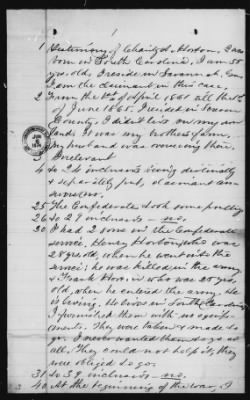 1 Testimony of Charity A. Horton. I was
born in South Carolina, I am 58
yrs. old, I reside in Savannah Ga
I am the claimant in this case.
2 From the 1st of April 1861 all the
of June 1865. I resided in
County. I did live on my own
land. It was my brother's farm.
my husband was overseeing there.
Irrelevant
4 to 24 inclusive being distinctly
& separately put, claimant ans
25 The Confederates took some poultry
26 to 29 inclusive — no.
30 I had 2 sons in the Confederate
service, Henry Horton, who was
28 yrs old, when he went into the
service; he was killed in the army
& Frank Horton who was 25 yrs
old, when he entered the army. He
is living. He lives in South Carolina
I furnished them with no equip-
ments. They were taken & made to
go. I never wanted them to go at
all. They could not help it, they
were obliged to go.
31 to 39 inclusive — no.
40 At the beginning of the war, I